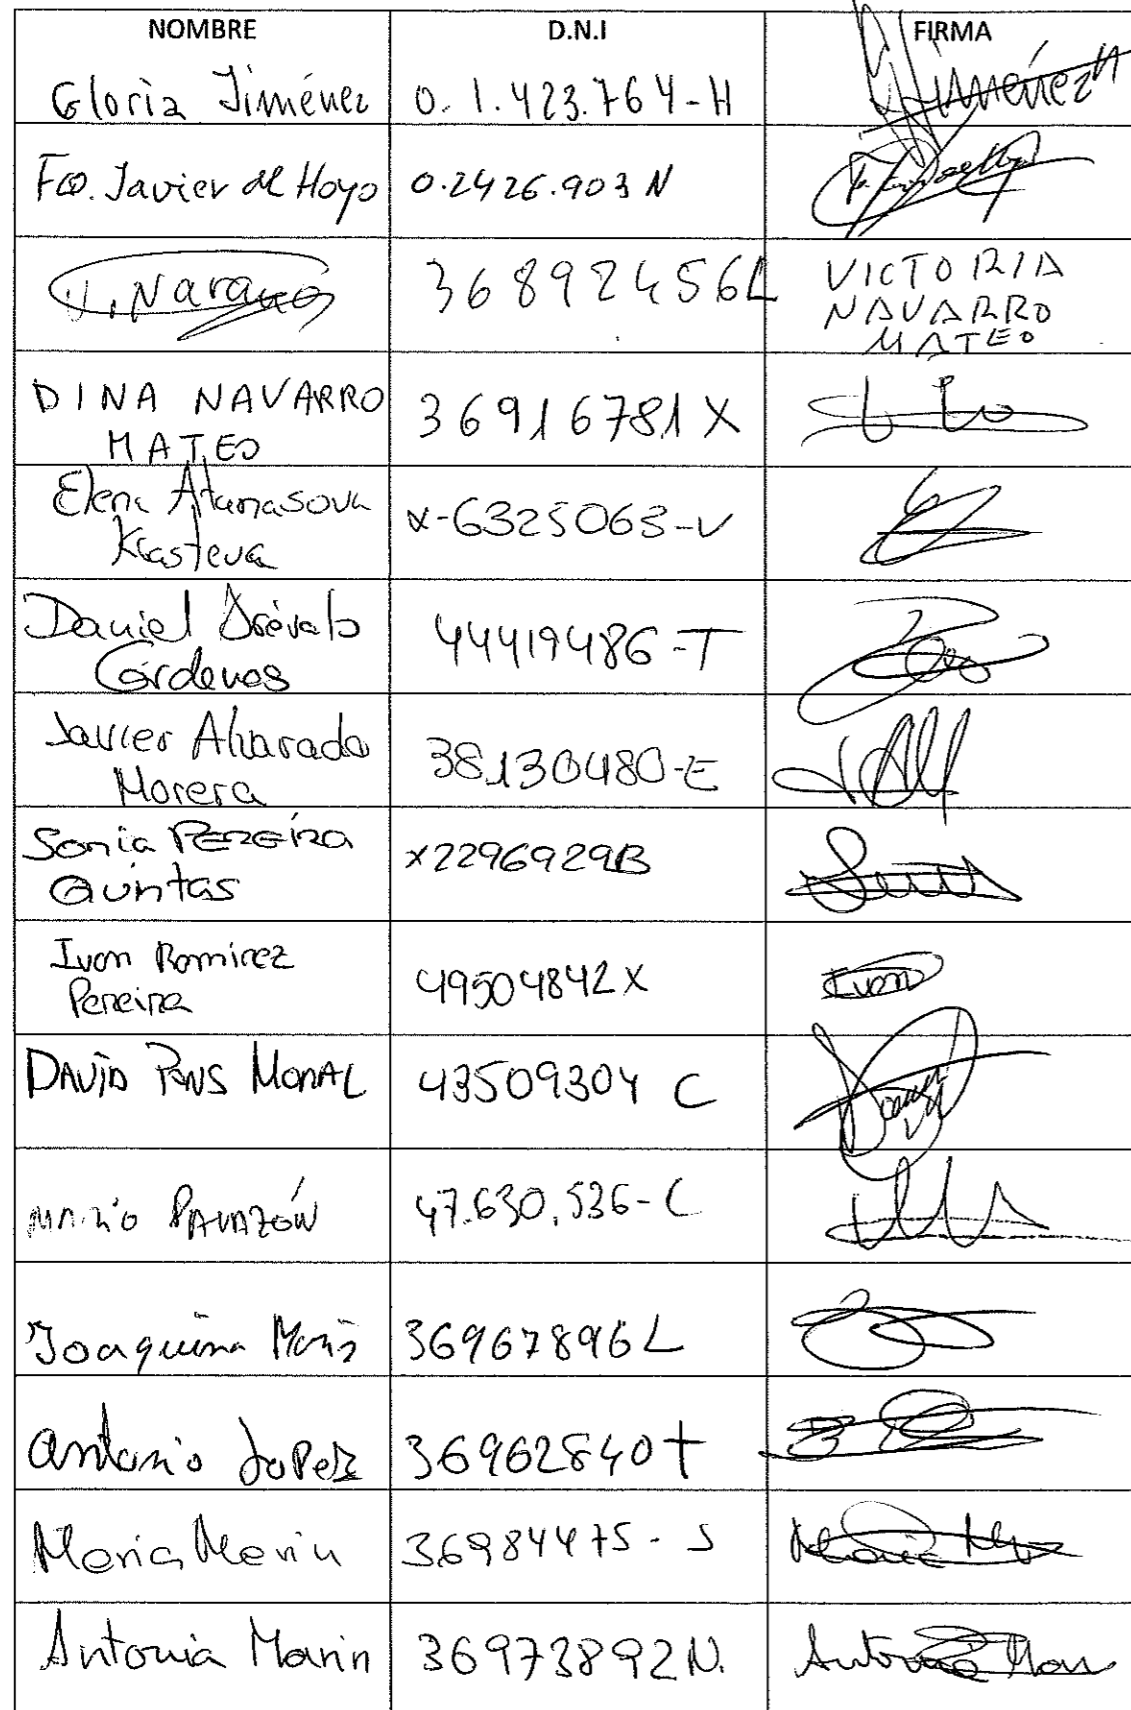 NOMBRE D.N.I FIRMA
Gloria Jiménez 0. 1.423.764-H Jiménez
Fco. Javier del Hoyo 0.2426.903 N
36892456L VICTORIA
NAVARRO
MATEO
DINA NAVARRO
MATEO 36916781X
Elena Atanasova
Krasteva X-6325063-V
Daniel Arévalo
Cárdenas 44419486-T
Javier Alvarado
Morera 38130480-E
Sonia PEREIRA
Quintas X2296929B
Ivan Ramirez
Pereira 49504842X Ivan
DAVID PONS MORAL 43509304 C
47.630.536-C
Joaquina 36967896L
Antonio Lopez 36962840T
Maria Marin 36984475-S
Antonia Marin 36973892N. Antonia